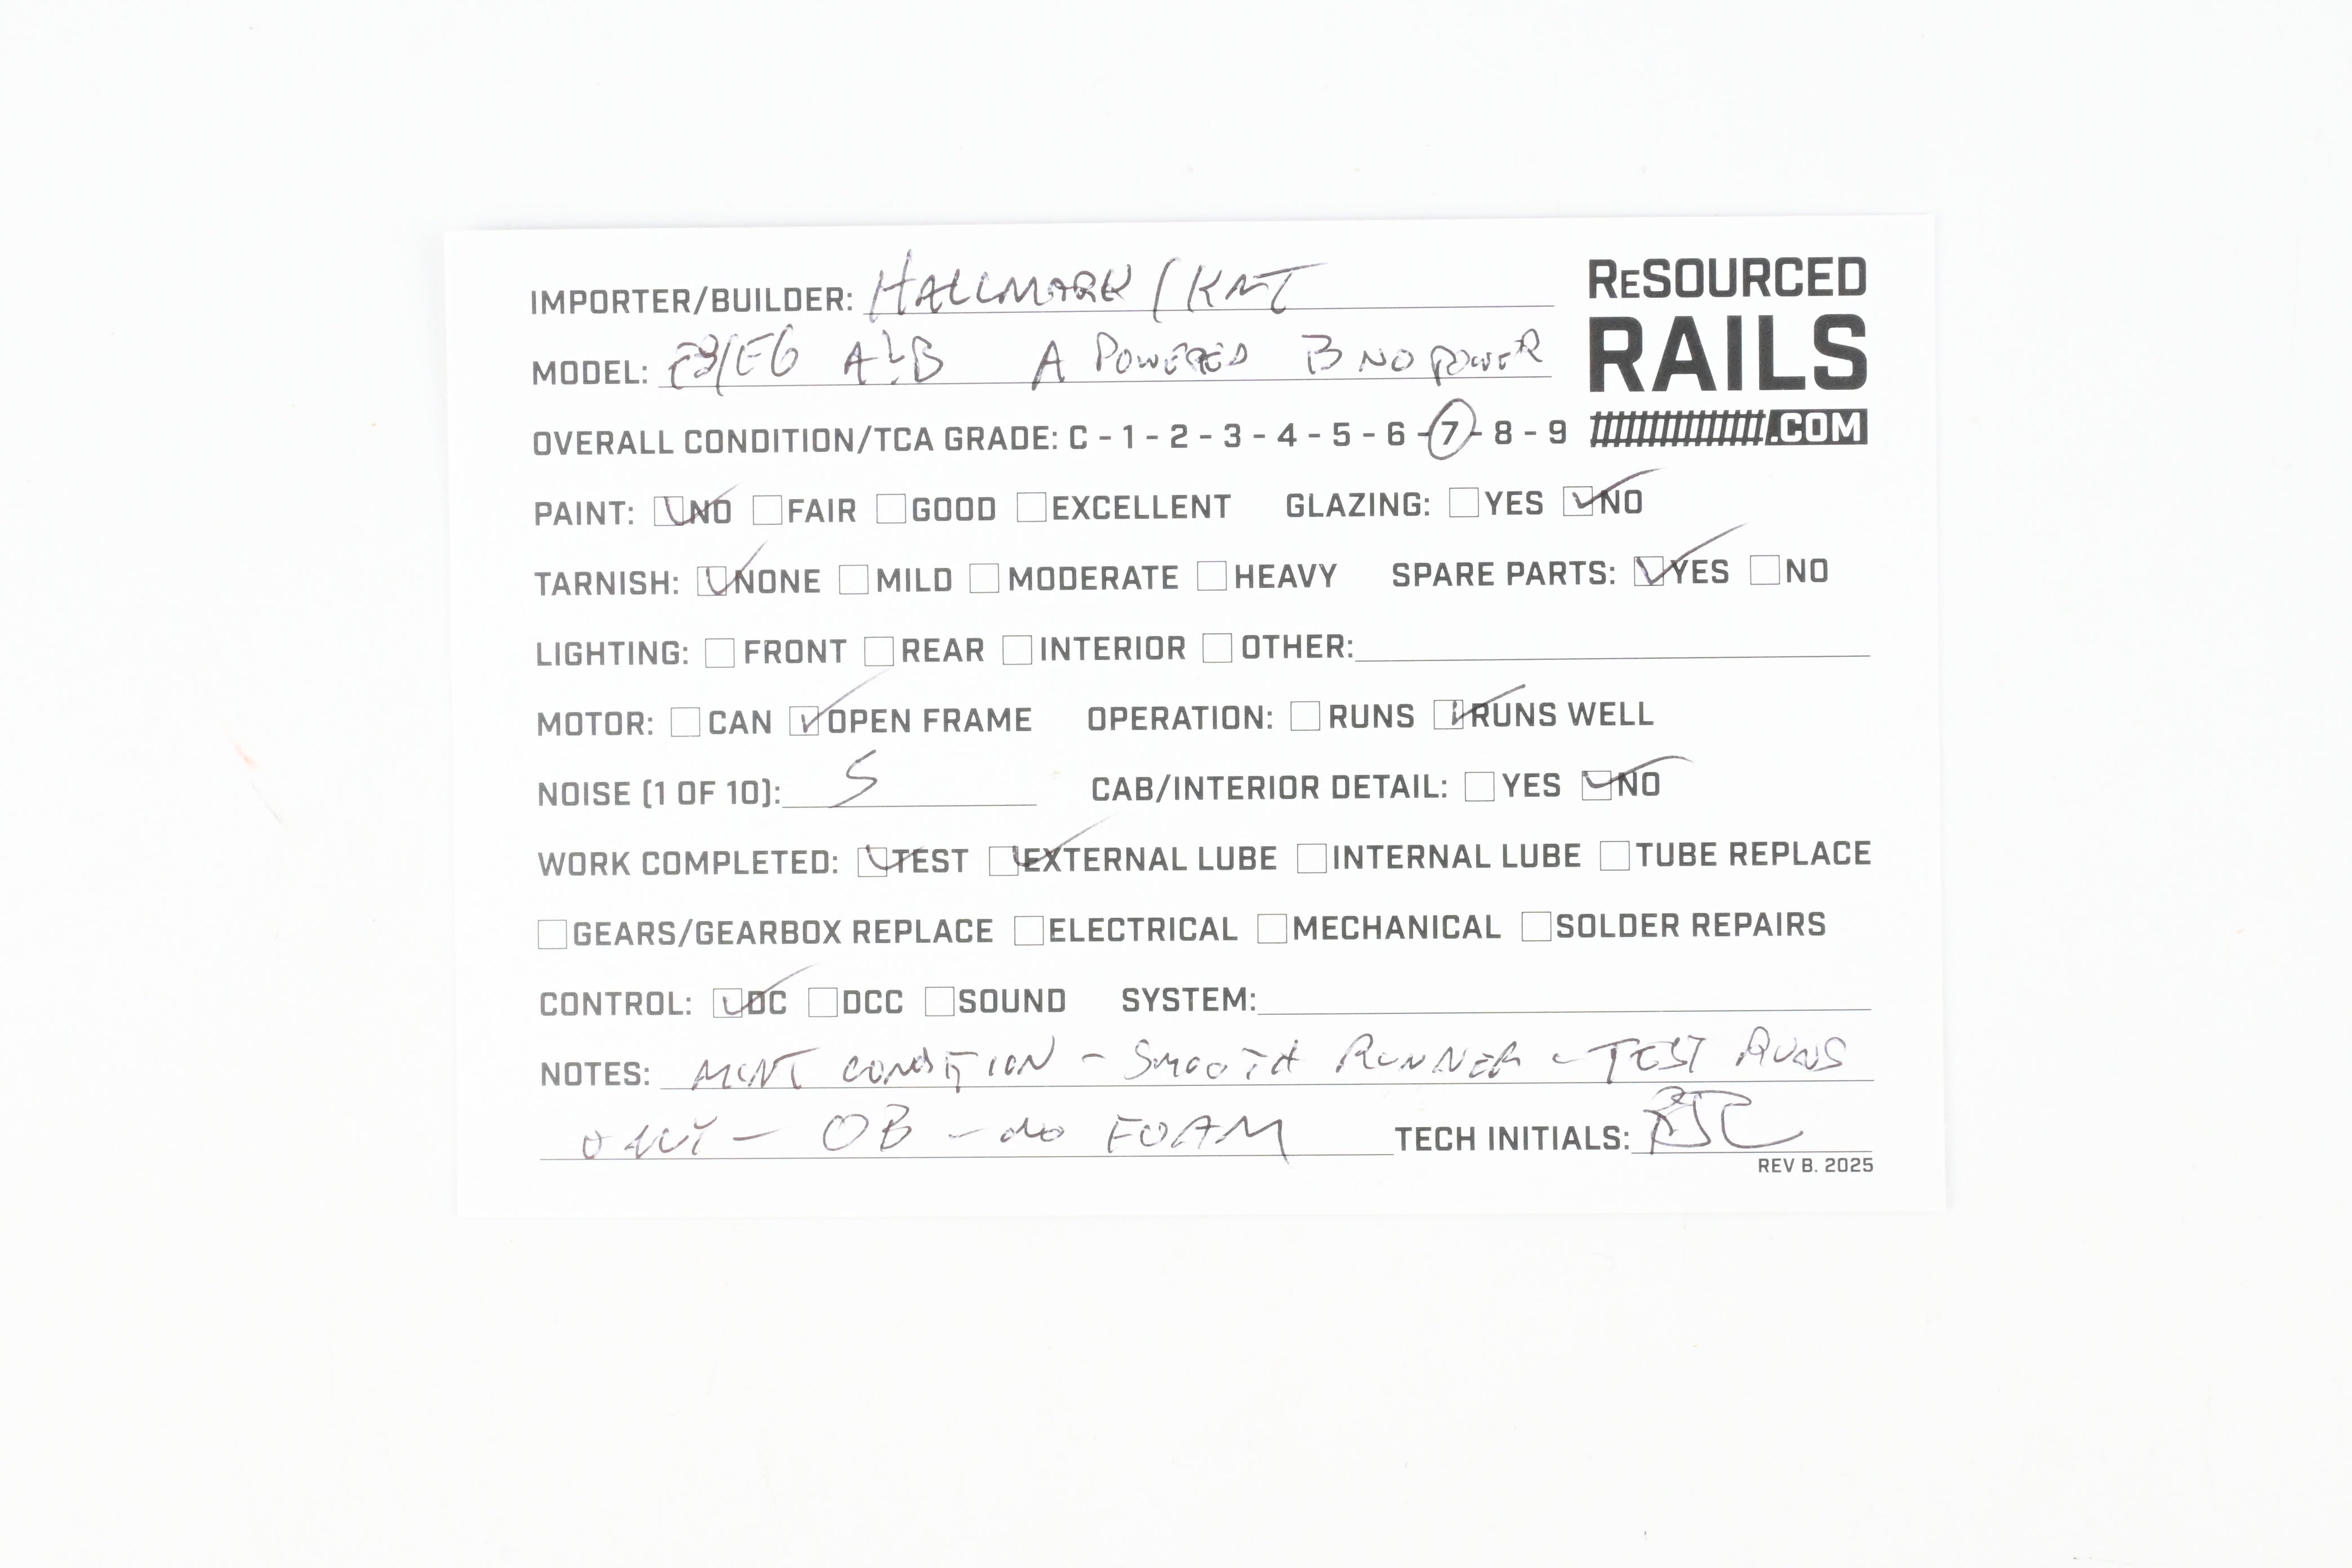 IMPORTER/BUILDER: HALLMARK / KMT
RESOURCED
RAILS
.COM
MODEL: E3/E6 A & B A POWERED B NO POWER
OVERALL CONDITION/TCA GRADE: C - 1 - 2 - 3 - 4 - 5 - 6 - 7 - 8 - 9
PAINT: NO FAIR GOOD EXCELLENT GLAZING: YES NO
TARNISH: NONE MILD MODERATE HEAVY SPARE PARTS: YES NO
LIGHTING: FRONT REAR INTERIOR OTHER:
MOTOR: CAN OPEN FRAME OPERATION: RUNS RUNS WELL
NOISE (1 OF 10): 5 CAB/INTERIOR DETAIL: YES NO
WORK COMPLETED: TEST EXTERNAL LUBE INTERNAL LUBE TUBE REPLACE
GEARS/GEARBOX REPLACE ELECTRICAL MECHANICAL SOLDER REPAIRS
CONTROL: DC DCC SOUND SYSTEM:
NOTES: MINT CONDITION - SMOOTH RUNNER - TEST RUNS
ONLY - OB - NO FOAM TECH INITIALS:
REV B. 2025